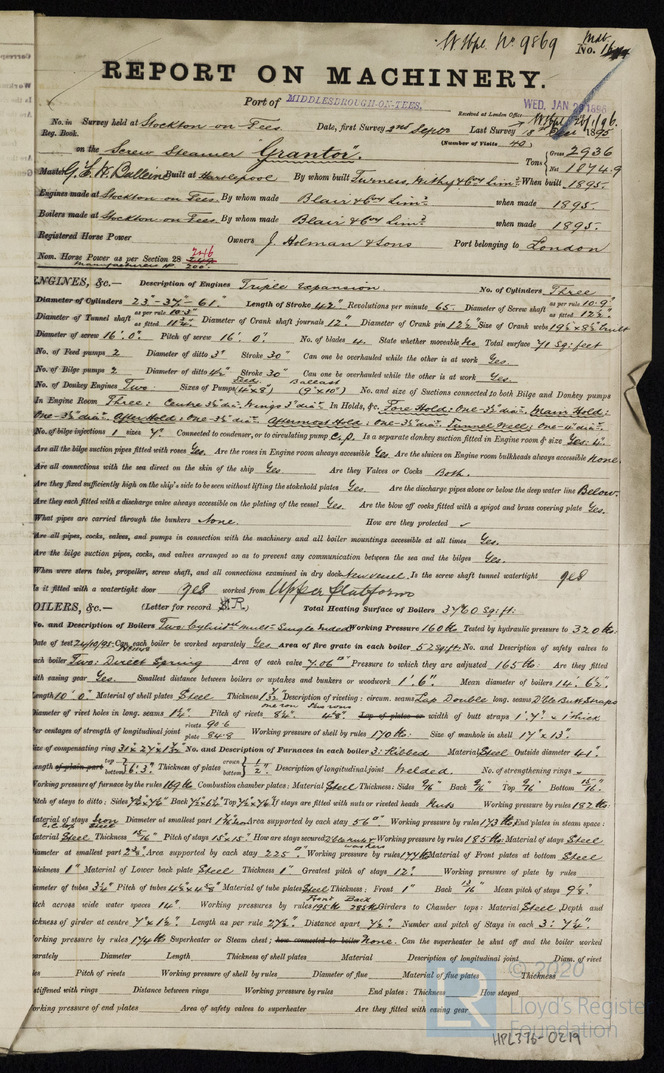 W Hpl No 9869
No. 16
REPORT ON MACHINERY.
Port of MIDDLESBROUGH-ON-TEES,
Received at London Office WED. JAN 29 1896
No. in Survey held at Stockton on Tees Date, first Survey 2nd Sept Last Survey 1895
Reg. Book. (Number of Visits 40)
on the Screw Steamer "Grantor". Tons Gross 2936 Net 1874.9
Master Built at Hartlepool By whom built Furness, Withy & Coy Limd. When built 1895.
Engines made at Stockton on Tees By whom made Blair & Coy Limd. when made 1895.
Boilers made at Stockton on Tees By whom made Blair & Coy Limd. when made 1895.
Registered Horse Power Owners J. Holman & Sons Port belonging to London
Nom. Horse Power as per Section 28 246
manufacturers HP 200
ENGINES, &c.— Description of Engines Triple Expansion. No. of Cylinders Three
Diameter of Cylinders 23"-37"-61" Length of Stroke 42" Revolutions per minute 65. Diameter of Screw shaft as per rule 10.9" as fitted 12½"
Diameter of Tunnel shaft as per rule 10.3" as fitted 11¾" Diameter of Crank shaft journals 12" Diameter of Crank pin 12½" Size of Crank webs 19½ x 8½ built
Diameter of screw 16'.0" Pitch of screw 16'.0" No. of blades 4. State whether moveable No Total surface 71 Sq: feet
No. of Feed pumps 2 Diameter of ditto 3" Stroke 30" Can one be overhauled while the other is at work Yes.
No. of Bilge pumps 2 Diameter of ditto 4½" Stroke 30" Can one be overhauled while the other is at work Yes.
No. of Donkey Engines Two Sizes of Pumps Feed (4"x8") Ballast (9"x10") No. and size of Suctions connected to both Bilge and Donkey pumps
In Engine Room Three: Centre 3½" dia: Wings 3" dia: In Holds, &c. Fore Hold: One-3½" dia:. Main Hold:
One-3½ dia:. After Hold: One-3½" dia:. Aftermost Hold: One-3½" dia:. Tunnel Well: One-4" dia:.
No. of bilge injections 1 sizes 7". Connected to condenser, or to circulating pump C.P. Is a separate donkey suction fitted in Engine room & size Yes: 4".
Are all the bilge suction pipes fitted with roses Yes. Are the roses in Engine room always accessible Yes. Are the sluices on Engine room bulkheads always accessible None.
Are all connections with the sea direct on the skin of the ship Yes Are they Valves or Cocks Both.
Are they fixed sufficiently high on the ship's side to be seen without lifting the stokehold plates Yes. Are the discharge pipes above or below the deep water line Below.
Are they each fitted with a discharge valve always accessible on the plating of the vessel Yes. Are the blow off cocks fitted with a spigot and brass covering plate Yes.
What pipes are carried through the bunkers None. How are they protected ✓
Are all pipes, cocks, valves, and pumps in connection with the machinery and all boiler mountings accessible at all times Yes.
Are the bilge suction pipes, cocks, and valves arranged so as to prevent any communication between the sea and the bilges Yes.
When were stern tube, propeller, screw shaft, and all connections examined in dry dock New Vessel. Is the screw shaft tunnel watertight Yes
Is it fitted with a watertight door Yes worked from Upper Platform
BOILERS, &c.— (Letter for record S.R.) Total Heating Surface of Boilers 3760 Sq: ft:
No. and Description of Boilers Two Cylindl. mult. Single Ended Working Pressure 160 lbs Tested by hydraulic pressure to 320 lbs:
Date of test 24/10/95 Can each boiler be worked separately Yes Area of fire grate in each boiler 52 sq: ft: No. and Description of safety valves to
each boiler Two: Direct Spring Area of each valve 7.06 □" Pressure to which they are adjusted 165 lbs: Are they fitted
with easing gear Yes. Smallest distance between boilers or uptakes and bunkers or woodwork 1'.6" Mean diameter of boilers 14'.6½".
Length 10'.0" Material of shell plates Steel Thickness 1 3/32" Description of riveting: circum. seams Lap Double long. seams D'ble Butt Straps
Diameter of rivet holes in long. seams 1¼" Pitch of rivets 8¼". 4⅛". Lap of plates or width of butt straps 1'.7" x 1" thick
Per centages of strength of longitudinal joint rivets 90.6 plate 84.8 Working pressure of shell by rules 170 lbs: Size of manhole in shell 17"x13".
Size of compensating ring 31 x 27 x 1 3/32 No. and Description of Furnaces in each boiler 3: Ribbed Material Steel Outside diameter 41".
Length of plain part top bottom 6'.3" Thickness of plates crown bottom ½" Description of longitudinal joint Welded. No. of strengthening rings
Working pressure of furnace by the rules 169 lbs Combustion chamber plates: Material Steel Thickness: Sides 9/16" Back 9/16" Top 9/16" Bottom 15/16".
Pitch of stays to ditto: Sides 7½"x7½" Back 7½"x6½" Top 7½"x7½" If stays are fitted with nuts or riveted heads Nuts Working pressure by rules 182 lbs:
Material of stays Iron Diameter at smallest part Area supported by each stay 56□" Working pressure by rules 173 lbs End plates in steam space:
Material Steel Thickness 15/16" Pitch of stays 15"x15" How are stays secured D'ble nuts & washers Working pressure by rules 185 lbs: Material of stays Steel
Diameter at smallest part 2⅝" Area supported by each stay 225□" Working pressure by rules 174 lbs Material of Front plates at bottom Steel
Thickness 1" Material of Lower back plate Steel Thickness 1" Greatest pitch of stays 12" Working pressure of plate by rules
Diameter of tubes 3½" Pitch of tubes 4¾"x4⅝" Material of tube plates Steel Thickness: Front 1" Back 13/16" Mean pitch of stays 9⅜".
Pitch across wide water spaces 14". Working pressures by rules Front 195 lbs Back 285 lbs Girders to Chamber tops: Material Steel, Depth and
thickness of girder at centre 7"x1½" Length as per rule 27½". Distance apart 7½". Number and pitch of Stays in each 3: 7¼".
Working pressure by rules 174 lbs Superheater or Steam chest; how connected to boiler None. Can the superheater be shut off and the boiler worked
separately Diameter Length Thickness of shell plates Material Description of longitudinal joint Diam. of rivet
holes Pitch of rivets Working pressure of shell by rules Diameter of flue Material of flue plates Thickness
If stiffened with rings Distance between rings Working pressure by rules End plates: Thickness How stayed
Working pressure of end plates Area of safety valves to superheater Are they fitted with easing gear
© 2020
LR
Lloyd's Register
Foundation
HPL376-0219